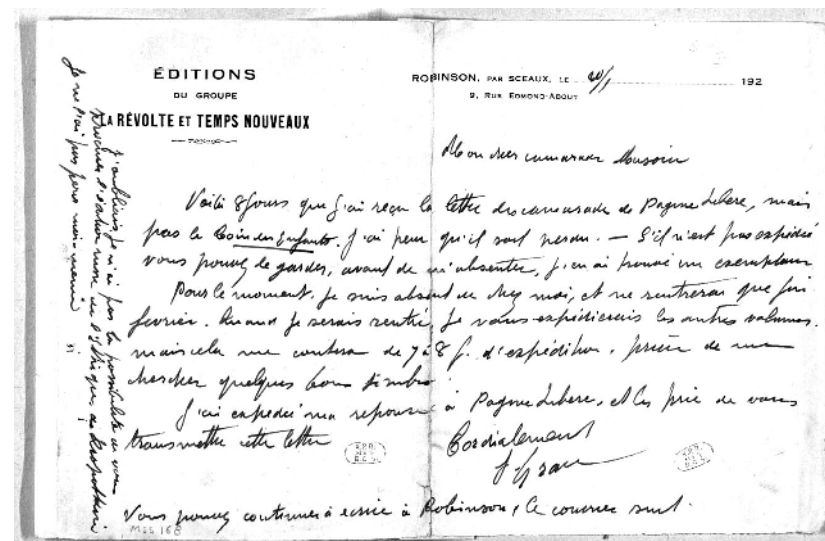 ÉDITIONS
DU GROUPE
LA RÉVOLTE ET TEMPS NOUVEAUX
ROBINSON, PAR SCEAUX, LE 20/1 192
9, RUE EDMOND-ABOUT
Mon cher camarade
Voilà 8 jours que j'ai reçu la lettre des camarades de Pagine Libere, mais
pas le Coin des Enfants. J'ai peur qu'il soit perdu. — S'il n'est pas expédié
vous pouvez le garder, avant de m'absenter, j'en ai trouvé un exemplaire
Pour le moment, je suis absent de chez moi, et ne rentrerai que fin
février. Quand je serais rentré, je vous expédierais les autres volumes.
mais cela me coutera de 7 à 8 f. d'expédition. prière de me
chercher quelques bons timbres
J'ai expédié ma réponse à Pagine Libere, et les prie de vous
transmettre cette lettre
Cordialement
J Grave
Vous pouvez continuer à écrire à Robinson, le courrier suit.
MSS 168
J'oubliais, je n'ai pas la possibilité de vous
procurer l'édition russe de l'Ethique de Kropotkine
je ne l'ai pas pour moi-même